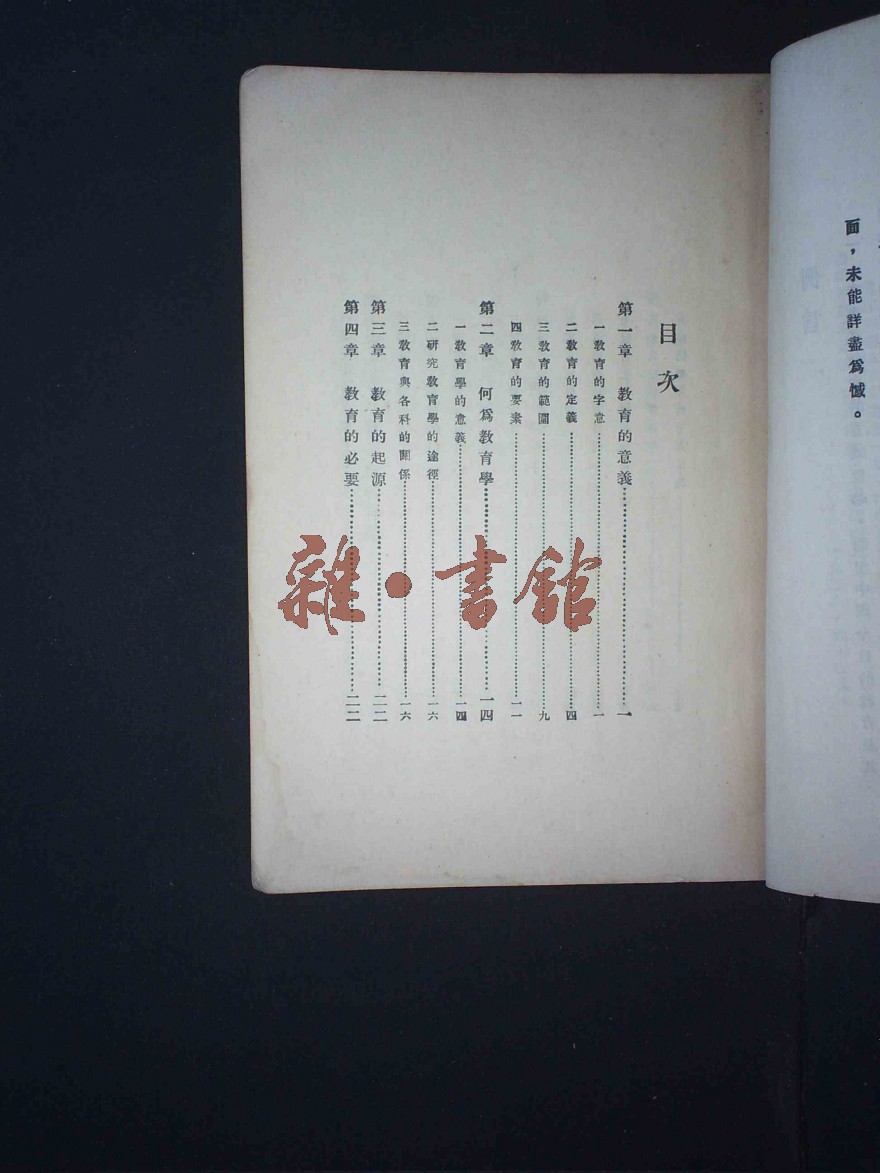 面，未能詳盡爲憾。
目次
第一章　教育的意義……一
一教育的字意……一
二教育的定義……四
三教育的範圍……九
四教育的要素……一一
第二章　何爲教育學……一四
一教育學的意義……一四
二研究教育學的途徑……一六
三教育與各科的關係……一六
第三章　教育的起源……二二
第四章　教育的必要……二二
雜·書館